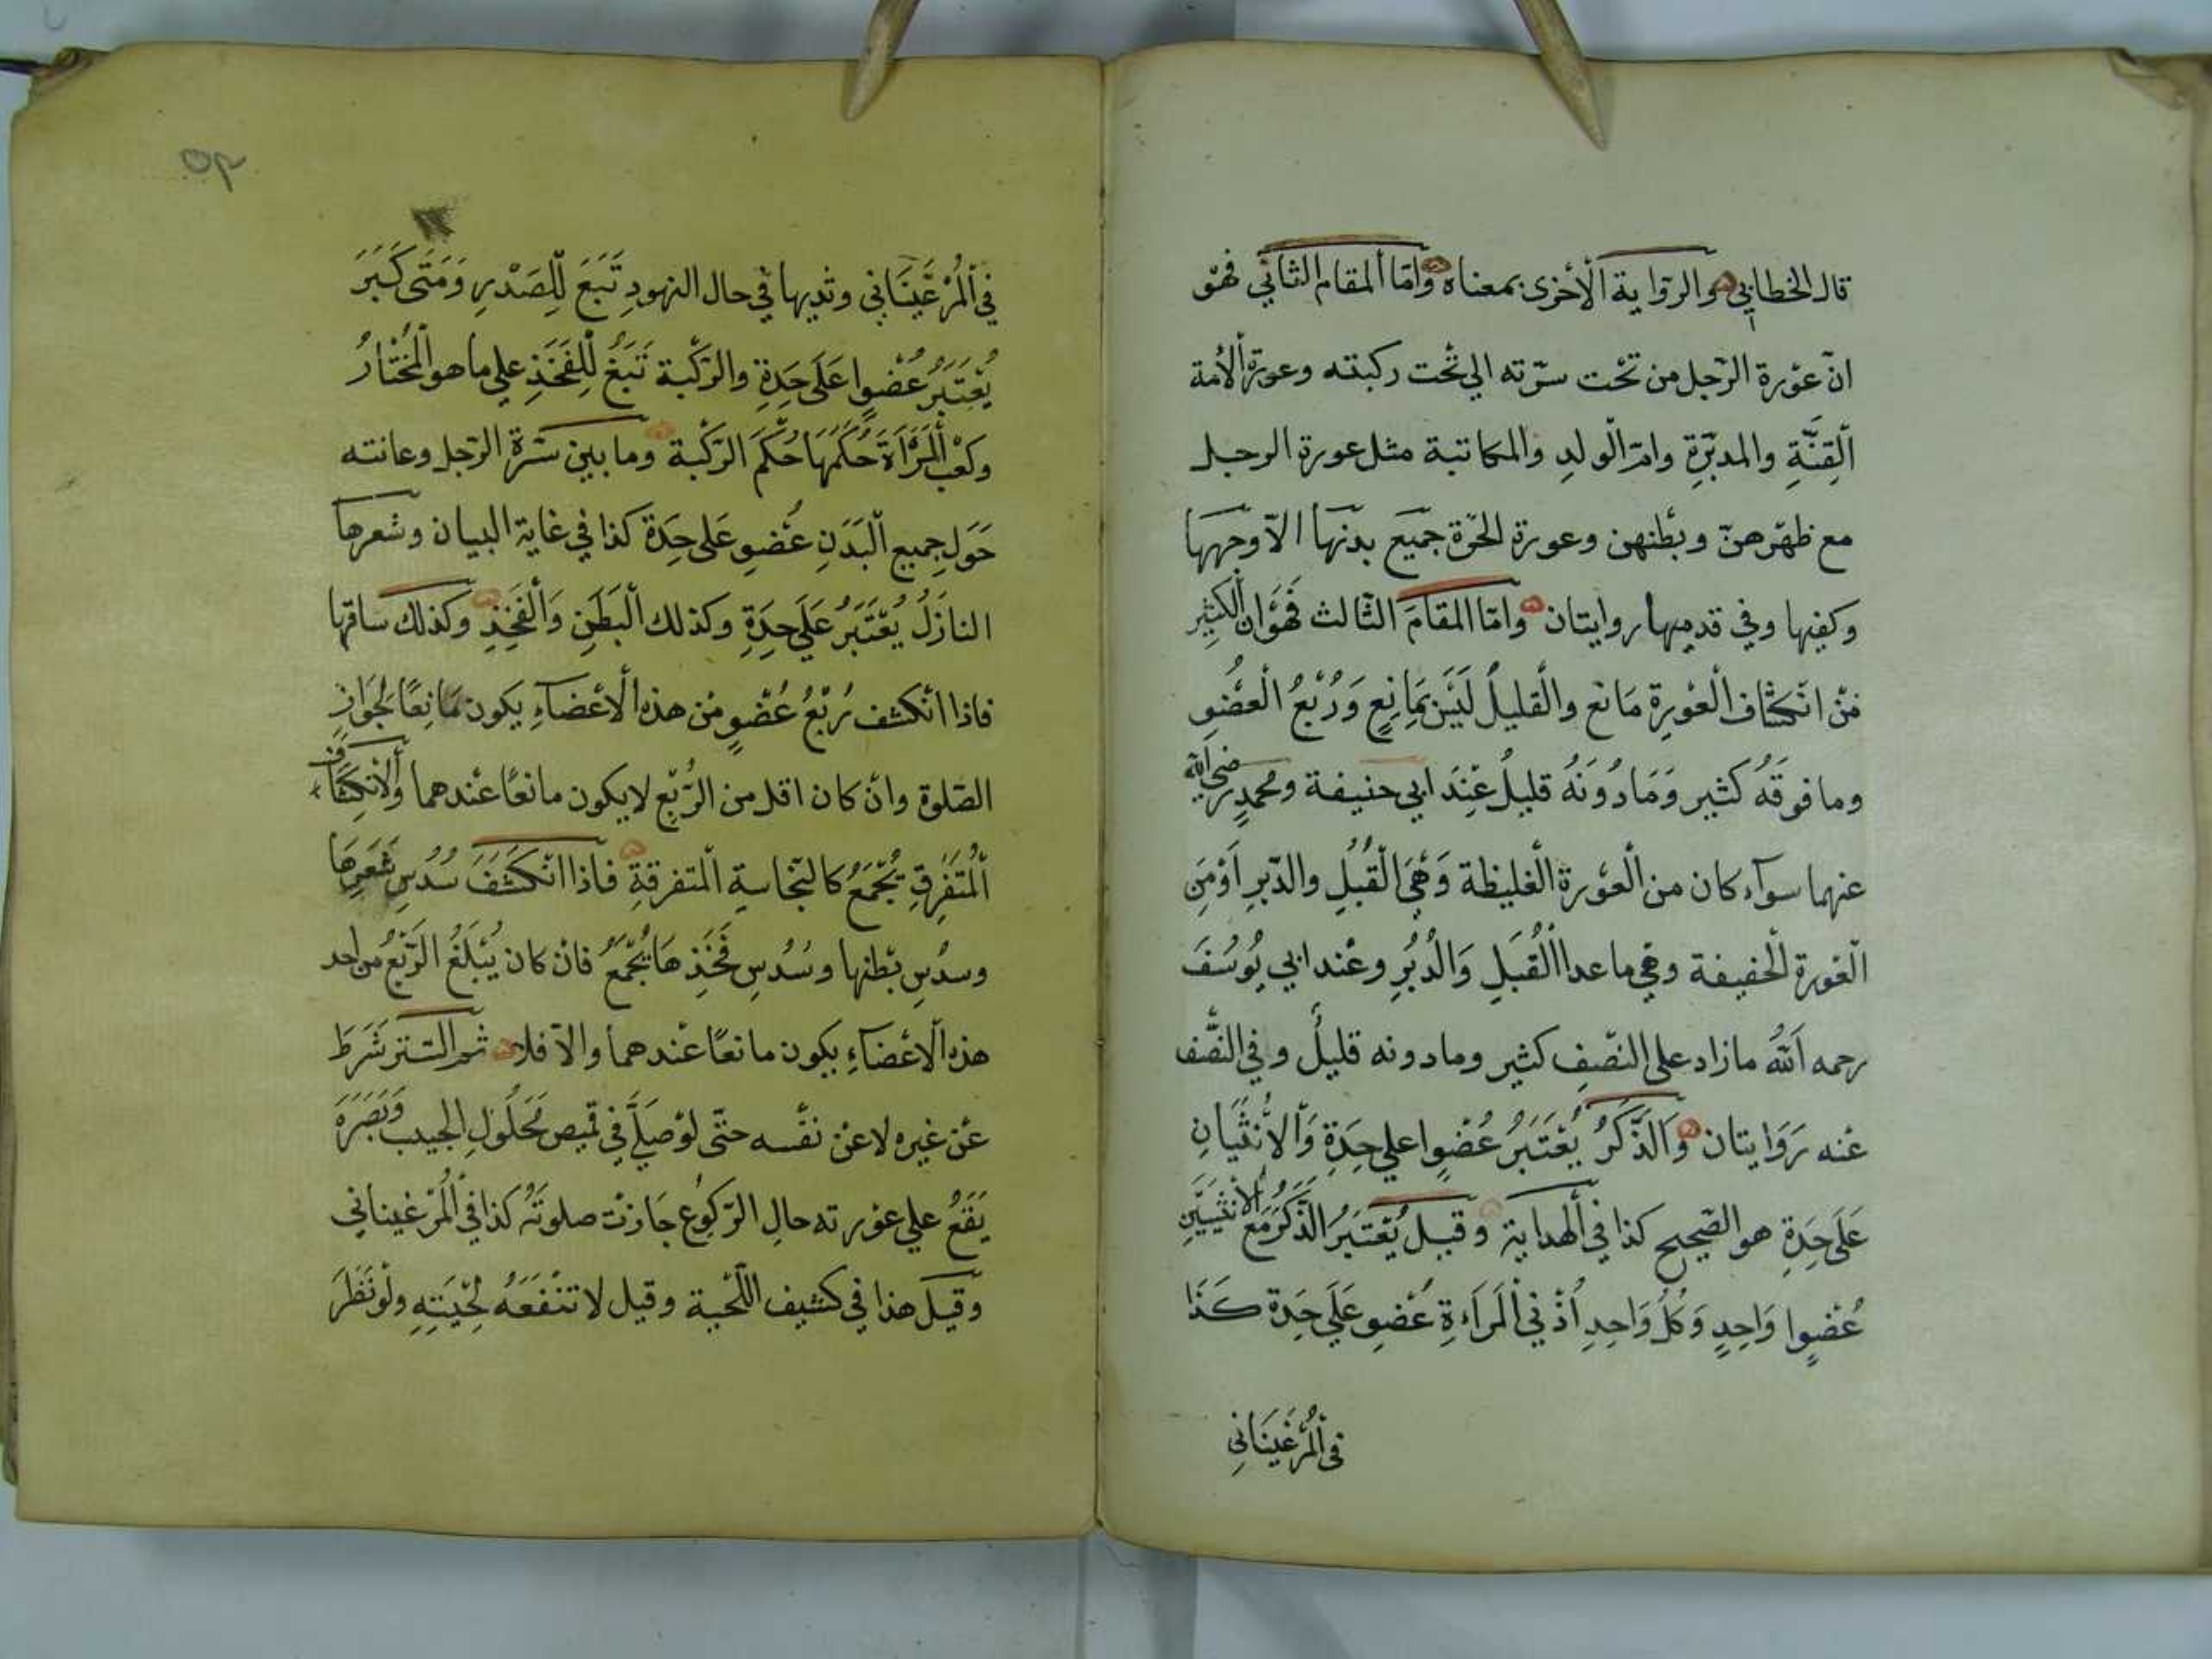 قال الخطابي والرواية الأخرى بمعناه وامّا المقام الثاني فهو
انّ عورة الرّجل من تحت سرّته الي تحت ركبته وعورة الأمة
القِنَّةِ والمدبّرةِ وامّ الولدِ والمكاتبة مثل عورة الرجل
مع ظهرهنّ وبطنهن وعورة الحرّة جميع بدنها الاّ وجهها
وكفيها وفي قدميها روايتان وامّا المقام الثّالث فهو ان الكثير
من انكشاف العورة مانع والقليلُ ليس بمانعٍ وَرُبْعُ العضو
وما فوقَهُ كثير وَمَادُونَهُ قليلُ عندَ ابي حنيفة ومحمدٍ رضي الله
عنهما سوآء كان من العورة الغليظة وَهِيَ القُبُلِ والدّبرِ اَوْمِنَ
العورة الخفيفة وهي ماعدا القُبَلِ وَالدُبُرِ وعند ابي يُوسُفَ
رحمه اَللهُ مازاد على النصّفِ كثير ومادونه قليلُ وفي النصْف
عنه رَوَايتان وَالذَّكَرُ يُعْتَبَرُ عُضْوٍا علي حِدَةِ وَالاُنْثَيَانِ
عَلَى حِدَةِ هو الصّحيح كذا في الهداية وقيل يُعْتَبَرُ الذَّكَرُ مَع الأنثَيَيْنِ
عُضْوٍا وَاحِدٍ وَكُلُ وَاحِدِ اُذْنيْ المَرَاءةِ عُضوِ عَلَى حِدة كَذَا
في المُرْغَينَانِي
في المُرْغَينَاني وثديها في حال النهودِ تَبَعَ لِلصَدْرِ وَمَتَى كَبَرَ
يُعْتَبَرُ عُضْوٍا عَلَى حِدَةِ والرّكبة تَبَعُ لِلفَخَذِ علي ما هو المُخْتَارُ
وكعْب المَرْاَةَ حُكْمُهَا حُكْمَ الرّكبة وما بين سُرّة الرّجل وعانته
حَولِ جميع البَدَنِ عُضوِ عَلى حِدَة كذا في غاية البيان وشعرها
النازَلُ يُعْتَبَرُ عَلَى حِدَةِ وكذلك البَطَنِ وَالفَخِذِ وكذلك ساقها
فاذا انكشف رُبْعُ عُضْوٍ من هذه الاَعْضَآءِ يكون مَانِعًا لِجَوَازِ
الصّلوة وان كان اقل من الرُّبْعِ لايكون مانعًا عندهما وَالاِنكِشَاف
المُتَفَرِّقِ يُجْمَعُ كالنجّاسةِ المتفرقةِ فَاذا انكَشَفَ سُدُسِ شَعرِهَا
وسدُسِ بَطنها وسُدُسِ فَخَذِهَا يُجْمَعُ فان كان يُبْلَغُ الرّبْعُ من احد
هذه الاَعْضَآءِ يكون مانعًا عندهما والاّ فلا ثم السّتر شَرَط
عن غيره لاعن نفْسه حتّى لوْ صَلّي في قميص مَحَلُولِ الجيب وَبَصَرَهُ
يَقَعُ علي عورته حالِ الرّكوع جازت صلوتَهُ كذا في المُرْغيناني
وقيل هذا في كثيف اللّحية وقيل لاتنْفَعَهُ لحْيَتِهِ ولَونَظَرَ